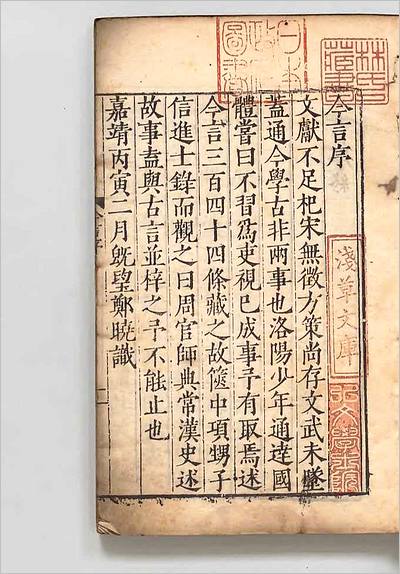 林氏藏書
日本政府圖書
今言序
淺草文庫
弘文學士院
文獻不足杞宋無徵方策尚存文武未墜
蓋通今學古非兩事也洛陽少年通達國
體嘗曰不習爲吏視已成事予有取焉述
今言三百四十四條藏之故篋中項甥子
信進士錄而觀之曰周官師典常漢史述
故事蓋與古言並梓之予不能止也
嘉靖丙寅二月既望鄭曉識